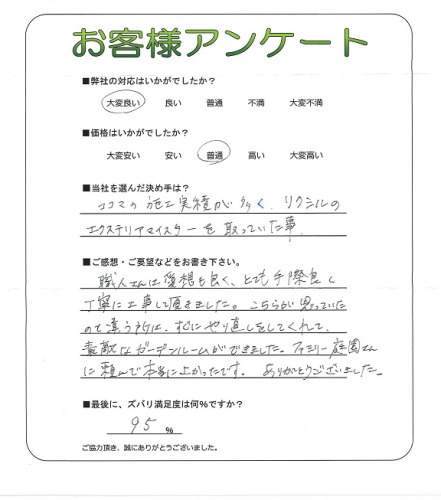 お客様アンケート
■弊社の対応はいかがでしたか?
大変良い 良い 普通 不満 大変不満
■価格はいかがでしたか?
大変安い 安い 普通 高い 大変高い
■当社を選んだ決め手は?
ココマの施工実績が多く、リクシルの
エクステリアマイスターを取っていた事。
■ご感想・ご要望などをお書き下さい。
職人さんは愛想も良く、とても手際良く
丁寧に工事して頂きました。こちらが思っていた
のと違う所は、すぐにやり直しをしてくれて、
素敵なガーデンルームができました。ファミリー庭園さん
に頼んで本当に良かったです。 ありがとうございました。
■最後に、ズバリ満足度は何%ですか?
95 %
ご協力頂き、誠にありがとうございました。